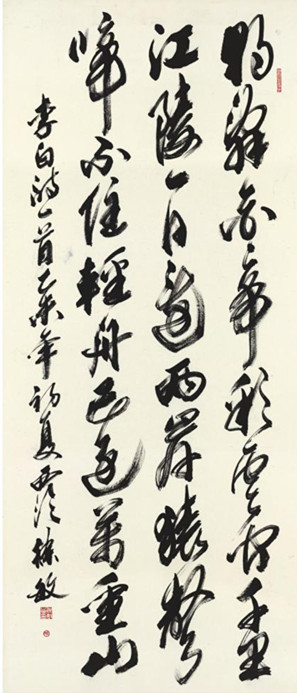 朝辭白帝彩雲間千里
江陵一日還兩岸猿聲
啼不住輕舟已過萬重山
李白詩一首乙未年初夏徐敏